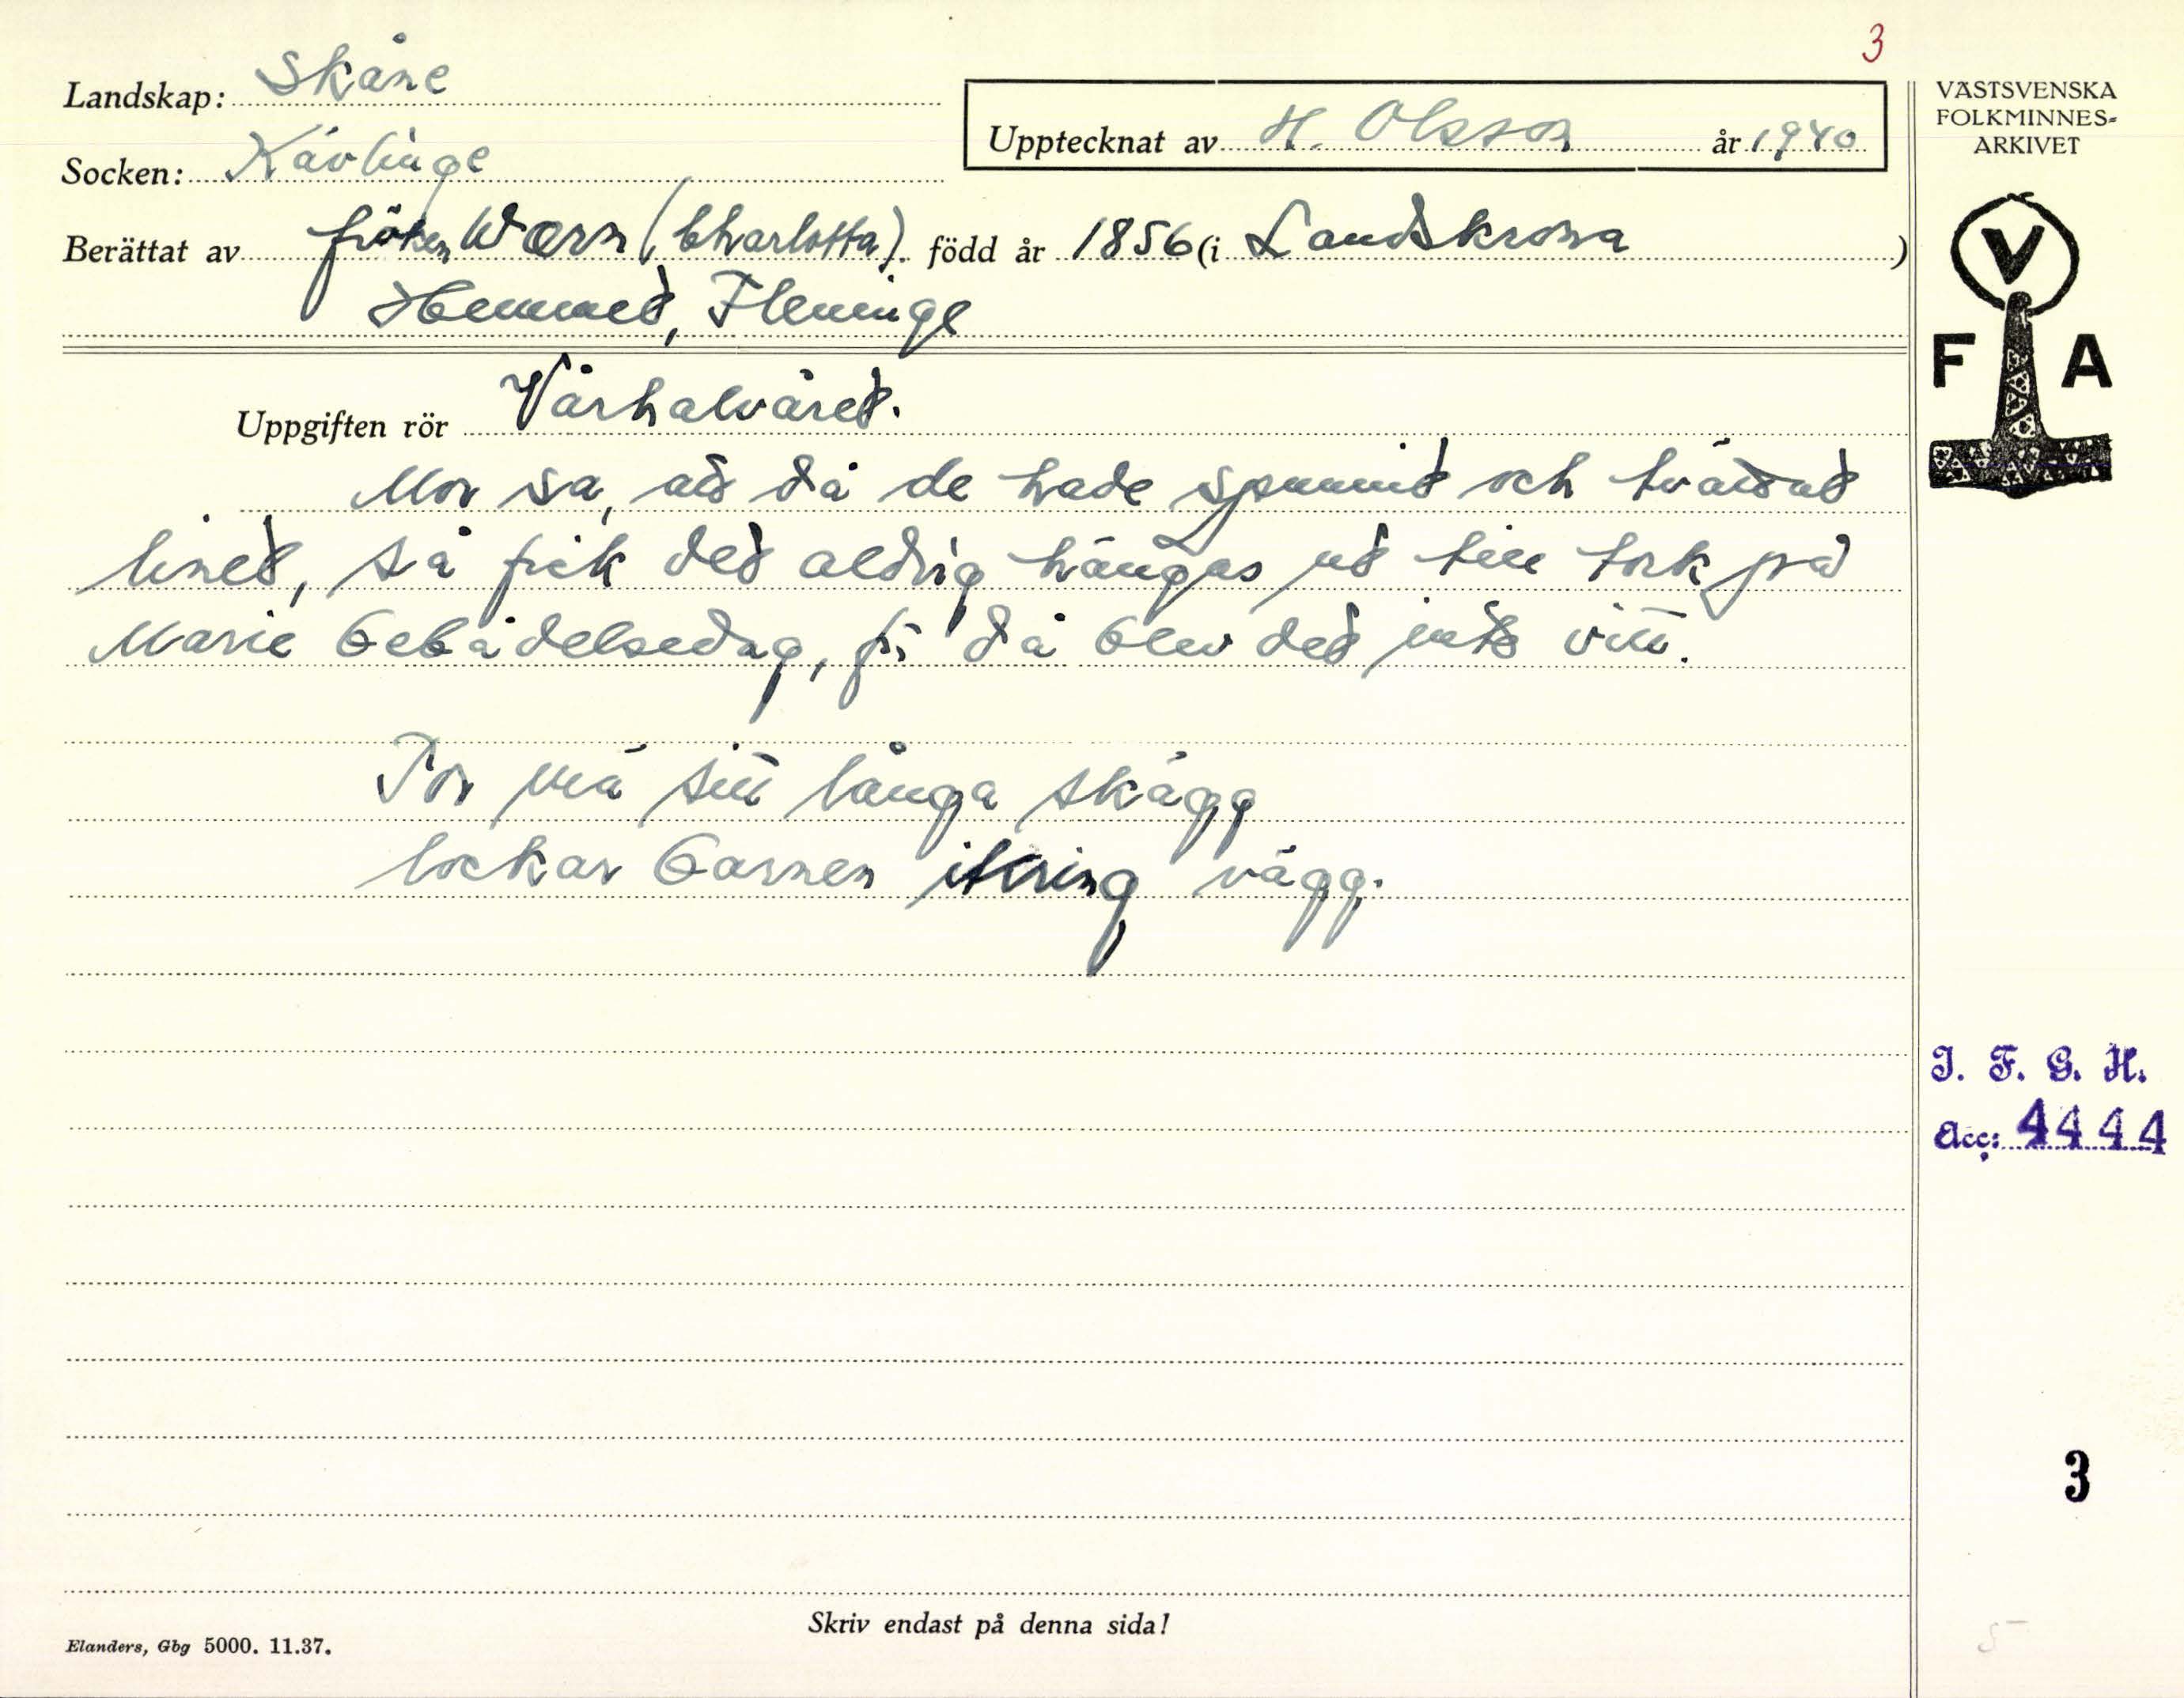 3
Landskap: Skåne
Upptecknat av H. Olsson år 1940
Socken: Kävlinge
Berättat av fröken Wærn (Charlotta). född år 1856 (i Landskrona)
Hemmet, Fleninge
Uppgiften rör Vårhalvåret.
Mor sa, att då de hade spunnit och tvättat
linet, så fick det aldrig hängas ut till tork på
Marie bebådelsedag, för då blev det inte vitt.
Tor mä sitt långa skägg
lockar barnen ikring vägg.
VÄSTSVENSKA
FOLKMINNES-
ARKIVET
V
F A
I. F. G. H.
Acc: 4444
3
Skriv endast på denna sida!
Elanders, Gbg 5000. 11.37.
5